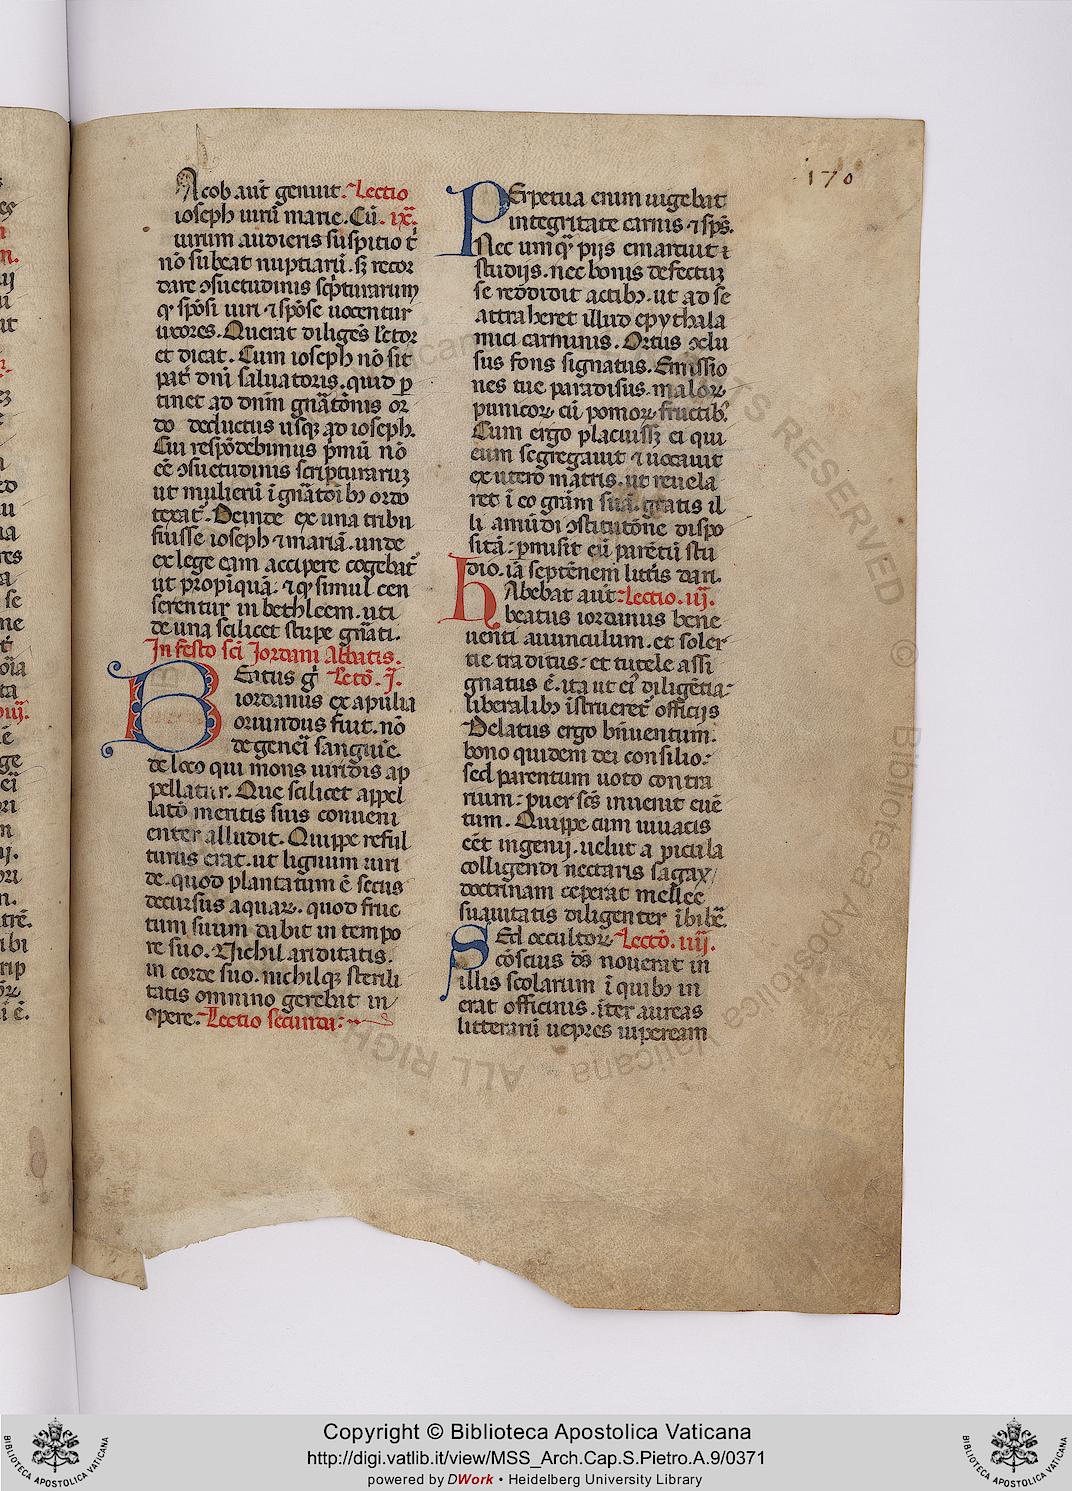 170
Acob. aut̄ genuit. Lectio
ioseph uirū marie. Cū. ix.
uirum audieris suspitio t̄
nō subeat nuptiarū. sꝫ recor
dare ɔsuetudinis scͥpturarum
qͥ spōsi uiri ⁊ spōse uocentur
uxores. Querat diligēs lector
et dicat. Cum ioseph nō sit
pat̄ dn̄i saluatoris. quid ꝑ
tinet ad dnīm gn̄atōnis or
do deductus usqꝫ ad ioseph.
Cui respōdebimus pͥmū nō
eē ɔsuetudinis scripturaruꝫ
ut mulierū ī gn̄atōibꝫ ordo
texat̄. Deinde ex una tribu
fuisse ioseph ⁊ mariā. unde
ex lege eam accipere cogebat̄
ut propīquā. ⁊ qͥ simul cen
serentur in bethleem. uti
de una scilicet stirpe gn̄ati.
In festo sc̄i Jordani Abbatis.
BEatus gͥ Lectō. j.
iordanus ex apulia
oriundus fuit. nō
de geneī sanguīe
de loco qui mons uiridis ap
pellatur. Que scilicet appel
latō meritis suis conueni
enter alludit. Quippe reful
turus erat. ut lignum uiri
de. quod plantatum ē secus
decursus aquaꝝ. quod fruc
tum suum dabit in tempo
re suo. Nichil ariditatis.
in corde suo. nichilqꝫ sterili
tatis omnino gerebat in
opere. Lectio secunda:
PErpetua enim uigebat
integritate carnis ⁊ sp̄s.
Nec umqͣ pijs emarcuit ī
studijs. nec bonis defectuꝫ
se reddidit actibꝫ. ut ad se
attraheret illud epythala
mici carminis. Ortus ɔclu
sus fons signatus. Emissio
nes tue paradisus. maloꝝ
punicoꝝ cū pomoꝝ fructibꝫ.
Cum ergo placuissꝫ ei qui
eum segregauit ⁊ uocauit
ex utero matris. ut reuela
ret ī eo grām suā. gratis il
li a mūdi ɔstitutōne dispo
sitā: ꝑmisit eū parētū stu
dio. iā septēnem litt̄is dari.
HAbebat aut̄: Lectio. iij.
beatus iordanus bene
uenti auunculum. et soler
tie traditus: et tutele assi
gnatus ē. ita ut eiꝰ diligētia
liberalibꝫ īstrueret̄ officijs
Delatus ergo bn̄uentum:
bono quidem dei consilio:
sed parentum uoto contra
rium: puer sc̄s inuenit euē
tum. Quippe cum uiuacis
eēt ingenij. uelut apicula
colligendi nectaris sagax/
doctrinam ceperat mellee
suauitatis diligenter ībibē.
SEd occultoꝝ Lectō. iiij.
cōscius ds̄ nouerat in
illis scolarum ī quibꝫ in
erat officinis. īter aureas
litterarū uepres uiperam
Copyright © Biblioteca Apostolica Vaticana
http://digi.vatlib.it/view/MSS_Arch.Cap.S.Pietro.A.9/0371
powered by DWork • Heidelberg University Library
BIBLIOTECA APOSTOLICA VATICANA
BIBLIOTECA APOSTOLICA VATICANA
ALL RIGHTS RESERVED © Biblioteca Apostolica Vaticana